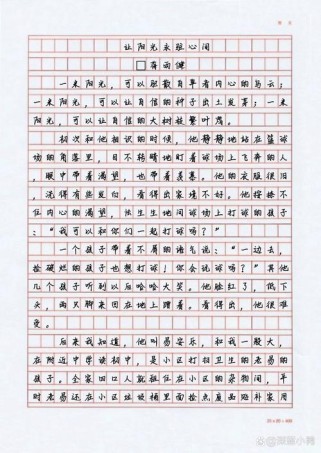 让阳光永驻心间
一米阳光，可以驱散自卑者内心的乌云；
一米阳光，可以让自信的种子出土发芽；一米
阳光，可以让自信的大树枝繁叶茂。
初次和他相识的时候，他静静地站在篮球
场的角落里，目不转睛地盯着球场上飞奔的人
，眼中带着渴望，也带着羡慕。他的衣服很旧
，洗得有些发白，看得出家境不好。他按捺不
住内心的渴望，怯生生地问球场上打球的孩子
：“我可以和你们一起打球吗？”
一个孩子带着不屑的语气说：“一边去，
捡破烂的孩子也想打球！你会说球吗？”其他
几个孩子听到以后哈哈大笑。他脸红了，低下
头，两只脚来回在地上蹭着。看得出，他很难
受。
后来我知道，他叫易安乐，和我一般大，
在附近中学读初中，是小区打扫卫生的老易的
孩子。全家四口人就租住在小区的杂物间，平
时老易还在小区垃圾桶里面捡点废品路补家用
20×20=400